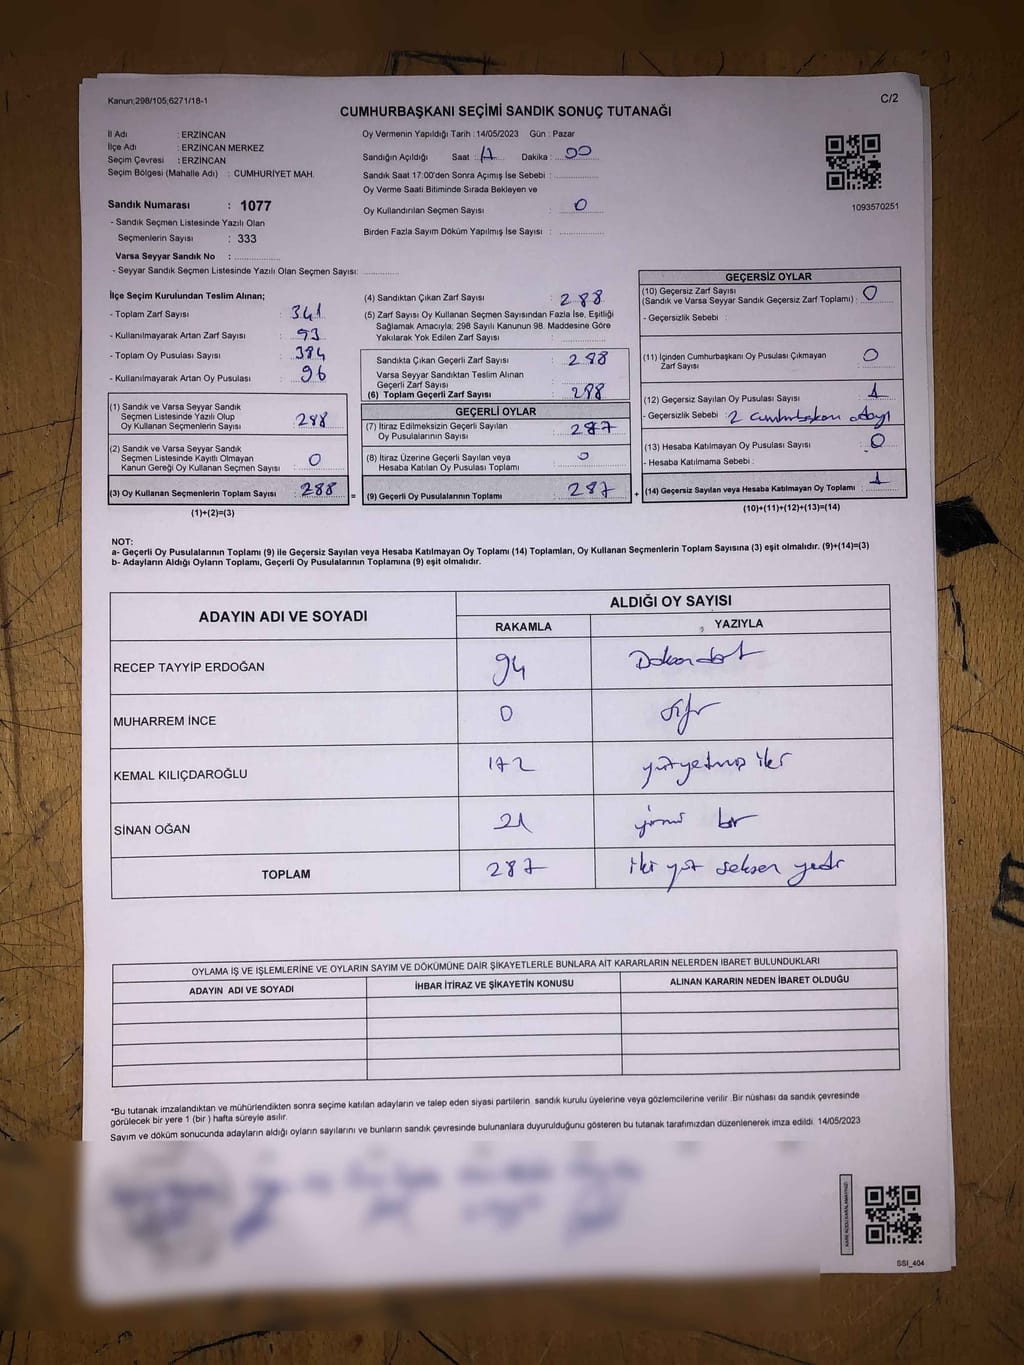 Kanun;298/105,6271/18-1
C/2
CUMHURBAŞKANI SEÇİMİ SANDIK SONUÇ TUTANAĞI
İl Adı : ERZİNCAN
İlçe Adı : ERZİNCAN MERKEZ
Seçim Çevresi : ERZİNCAN
Seçim Bölgesi (Mahalle Adı) : CUMHURİYET MAH.
Sandık Numarası : 1077
- Sandık Seçmen Listesinde Yazılı Olan
Seçmenlerin Sayısı : 333
Varsa Seyyar Sandık No : ..............
- Seyyar Sandık Seçmen Listesinde Yazılı Olan Seçmen Sayısı: ............
Oy Vermenin Yapıldığı Tarih : 14/05/2023 Gün : Pazar
Sandığın Açıldığı Saat : Dakika : 00
Sandık Saat 17:00'den Sonra Açımış İse Sebebi : ..............
Oy Verme Saati Bitiminde Sırada Bekleyen ve
Oy Kullandırılan Seçmen Sayısı : 0
Birden Fazla Sayım Döküm Yapılmış İse Sayısı : ..............
1093570251
İlçe Seçim Kurulundan Teslim Alınan;
- Toplam Zarf Sayısı : 341
- Kullanılmayarak Artan Zarf Sayısı : 53
- Toplam Oy Pusulası Sayısı : 384
- Kullanılmayarak Artan Oy Pusulası : 96
(1) Sandık ve Varsa Seyyar Sandık
Seçmen Listesinde Yazılı Olup
Oy Kullanan Seçmenlerin Sayısı : 288
(2) Sandık ve Varsa Seyyar Sandık
Seçmen Listesinde Kayıtlı Olmayan
Kanun Gereği Oy Kullanan Seçmen Sayısı : 0
(3) Oy Kullanan Seçmenlerin Toplam Sayısı : 288 =
(1)+(2)=(3)
(4) Sandıktan Çıkan Zarf Sayısı : 288
(5) Zarf Sayısı Oy Kullanan Seçmen Sayısından Fazla İse, Eşitliği
Sağlamak Amacıyla; 298 Sayılı Kanunun 98. Maddesine Göre
Yakılarak Yok Edilen Zarf Sayısı : ..............
Sandıkta Çıkan Geçerli Zarf Sayısı : 288
Varsa Seyyar Sandıktan Teslim Alınan
Geçerli Zarf Sayısı : ..............
(6) Toplam Geçerli Zarf Sayısı : 288
GEÇERLİ OYLAR
(7) İtiraz Edilmeksizin Geçerli Sayılan
Oy Pusulalarının Sayısı : 287
(8) İtiraz Üzerine Geçerli Sayılan veya
Hesaba Katılan Oy Pusulası Toplamı : 0
(9) Geçerli Oy Pusulalarının Toplamı : 287 +
GEÇERSİZ OYLAR
(10) Geçersiz Zarf Sayısı
(Sandık ve Varsa Seyyar Sandık Geçersiz Zarf Toplamı) : 0
- Geçersizlik Sebebi :
(11) İçinden Cumhurbaşkanı Oy Pusulası Çıkmayan
Zarf Sayısı : 0
(12) Geçersiz Sayılan Oy Pusulası Sayısı : 1
- Geçersizlik Sebebi : 2 cumhurbaşkanı adayı
(13) Hesaba Katılmayan Oy Pusulası Sayısı : 0
- Hesaba Katılmama Sebebi :
(14) Geçersiz Sayılan veya Hesaba Katılmayan Oy Toplamı : 1
(10)+(11)+(12)+(13)=(14)
NOT:
a- Geçerli Oy Pusulalarının Toplamı (9) ile Geçersiz Sayılan veya Hesaba Katılmayan Oy Toplamı (14) Toplamları, Oy Kullanan Seçmenlerin Toplam Sayısına (3) eşit olmalıdır. (9)+(14)=(3)
b- Adayların Aldığı Oyların Toplamı, Geçerli Oy Pusulalarının Toplamına (9) eşit olmalıdır.
ADAYIN ADI VE SOYADI
ALDIĞI OY SAYISI
RAKAMLA YAZIYLA
RECEP TAYYİP ERDOĞAN 94 Doksan dört
MUHARREM İNCE 0 sıfır
KEMAL KILIÇDAROĞLU 172 yüzyetmiş iki
SİNAN OĞAN 21 yirmi bir
TOPLAM 287 iki yüz seksen yedi
OYLAMA İŞ VE İŞLEMLERİNE VE OYLARIN SAYIM VE DÖKÜMÜNE DAİR ŞİKAYETLERLE BUNLARA AİT KARARLARIN NELERDEN İBARET BULUNDUKLARI
ADAYIN ADI VE SOYADI İHBAR İTİRAZ VE ŞİKAYETİN KONUSU ALINAN KARARIN NEDEN İBARET OLDUĞU
*Bu tutanak imzalandıktan ve mühürlendikten sonra seçime katılan adayların ve talep eden siyasi partilerin sandık kurulu üyelerine veya gözlemcilerine verilir. Bir nüshası da sandık çevresinde
görülecek bir yere 1 (bir) hafta süreyle asılır.
Sayım ve döküm sonucunda adayların aldığı oyların sayılarını ve bunların sandık çevresinde bulunanlara duyurulduğunu gösteren bu tutanak tarafımızdan düzenlenerek imza edildi. 14/05/2023
SSI_404